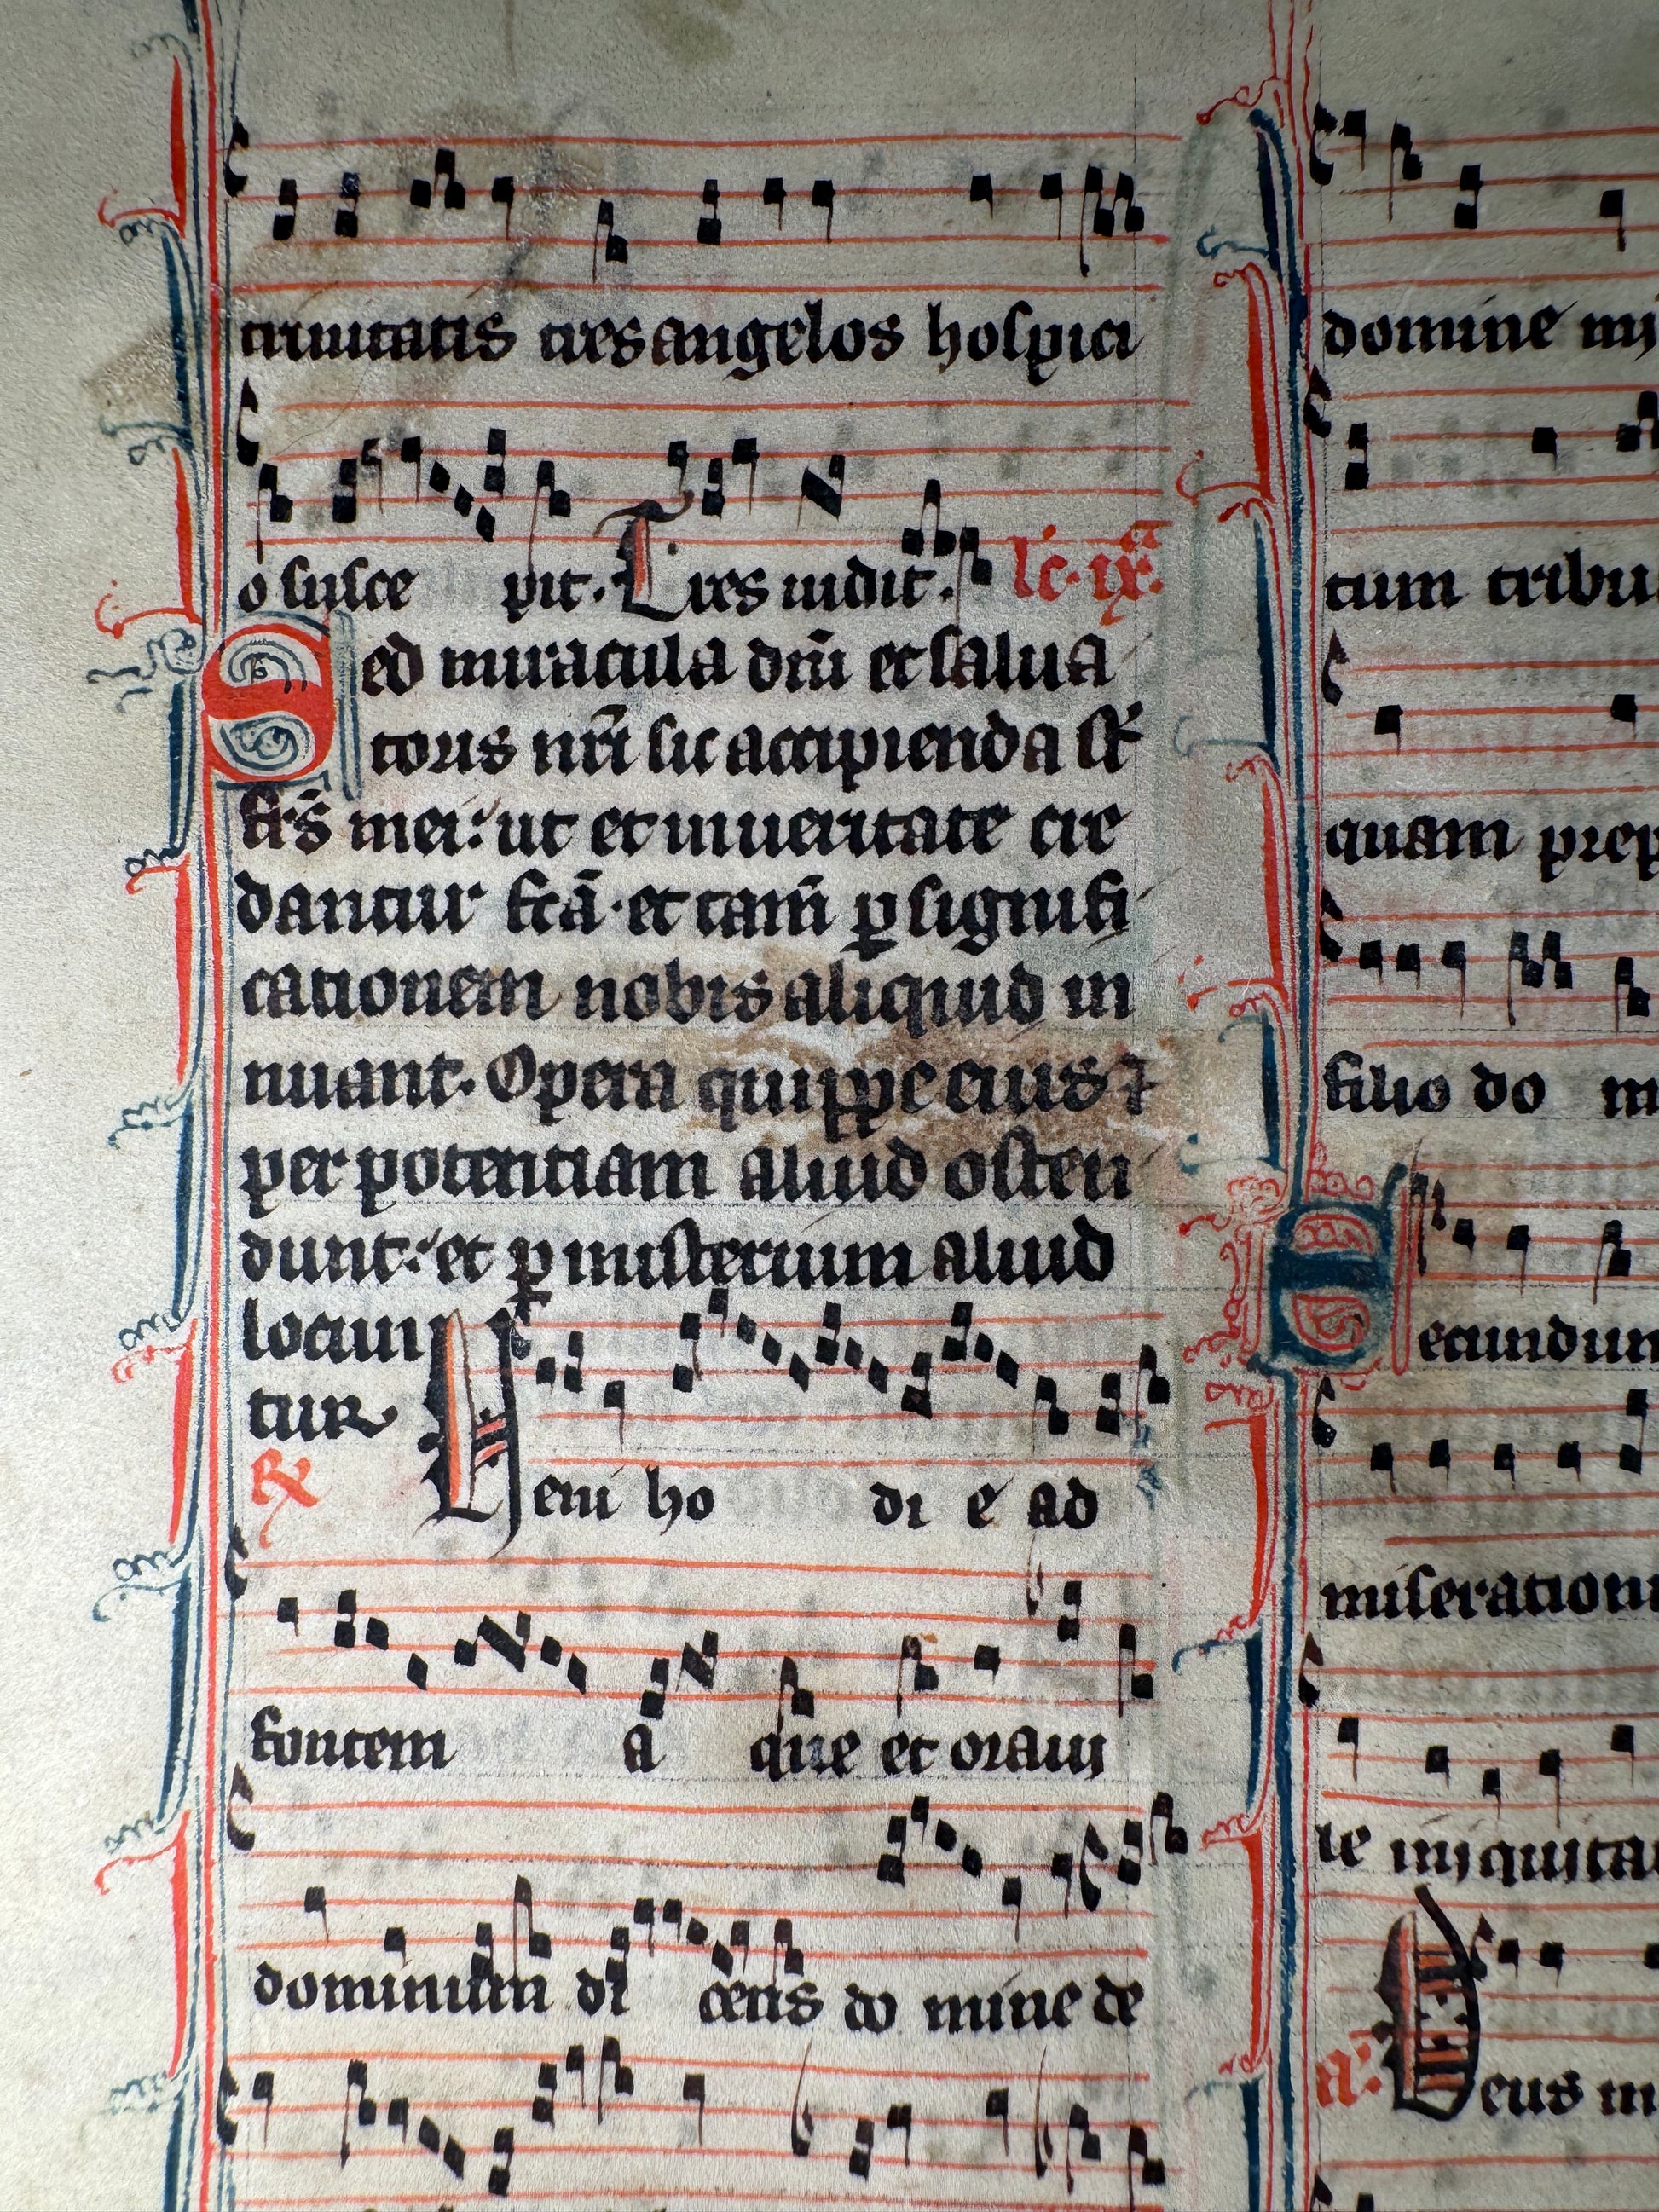 trinitatis tres angelos hospici
o susce pit. Tres uidit. lc. ix.ª
Sed miracula dn̄i et salua
toris nr̄i sic accipienda st̄
frs̄ mei: ut et in ueritate cre
dantur fcā. et tam̄ ꝑ signifi
cationem nobis aliquid in
nuant. Opera quippe eius ⁊
per potentiam aliud osten
dunt: et ꝑ misterium aliud
locun
tur
℟ Ueni ho di e ad
fontem a que et oraui
dominum di cens do mine de
domine
tum tribu
quam prep
filio do m
Secundum
miseration
re iniquita
a: Deus m